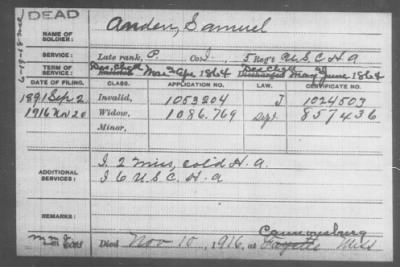 DEAD
NAME OF SOLDIER: Anden, Samuel
SERVICE: Late rank, P. Co. I, 5 Reg't U.S.C.H.A
TERM OF SERVICE: Enlisted 1864 Discharged 1864
DATE OF FILING. CLASS. APPLICATION NO. LAW. CERTIFICATE NO.
1891 Sep. 2 Invalid, 1053204 J 1024503
1916 Nov 20 Widow, 1086.769 Sept 857436
Minor,
ADDITIONAL SERVICES: I. 2 Miss. col'd H.A.
I 6 U.S.C.H.A
REMARKS:
Cannonsburg
Died Nov 10, 1916, at Fayette Miss